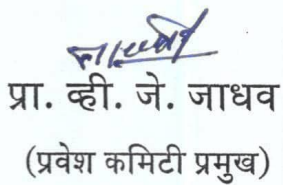 प्रा. व्ही. जे. जाधव
(प्रवेश कमिटी प्रमुख)